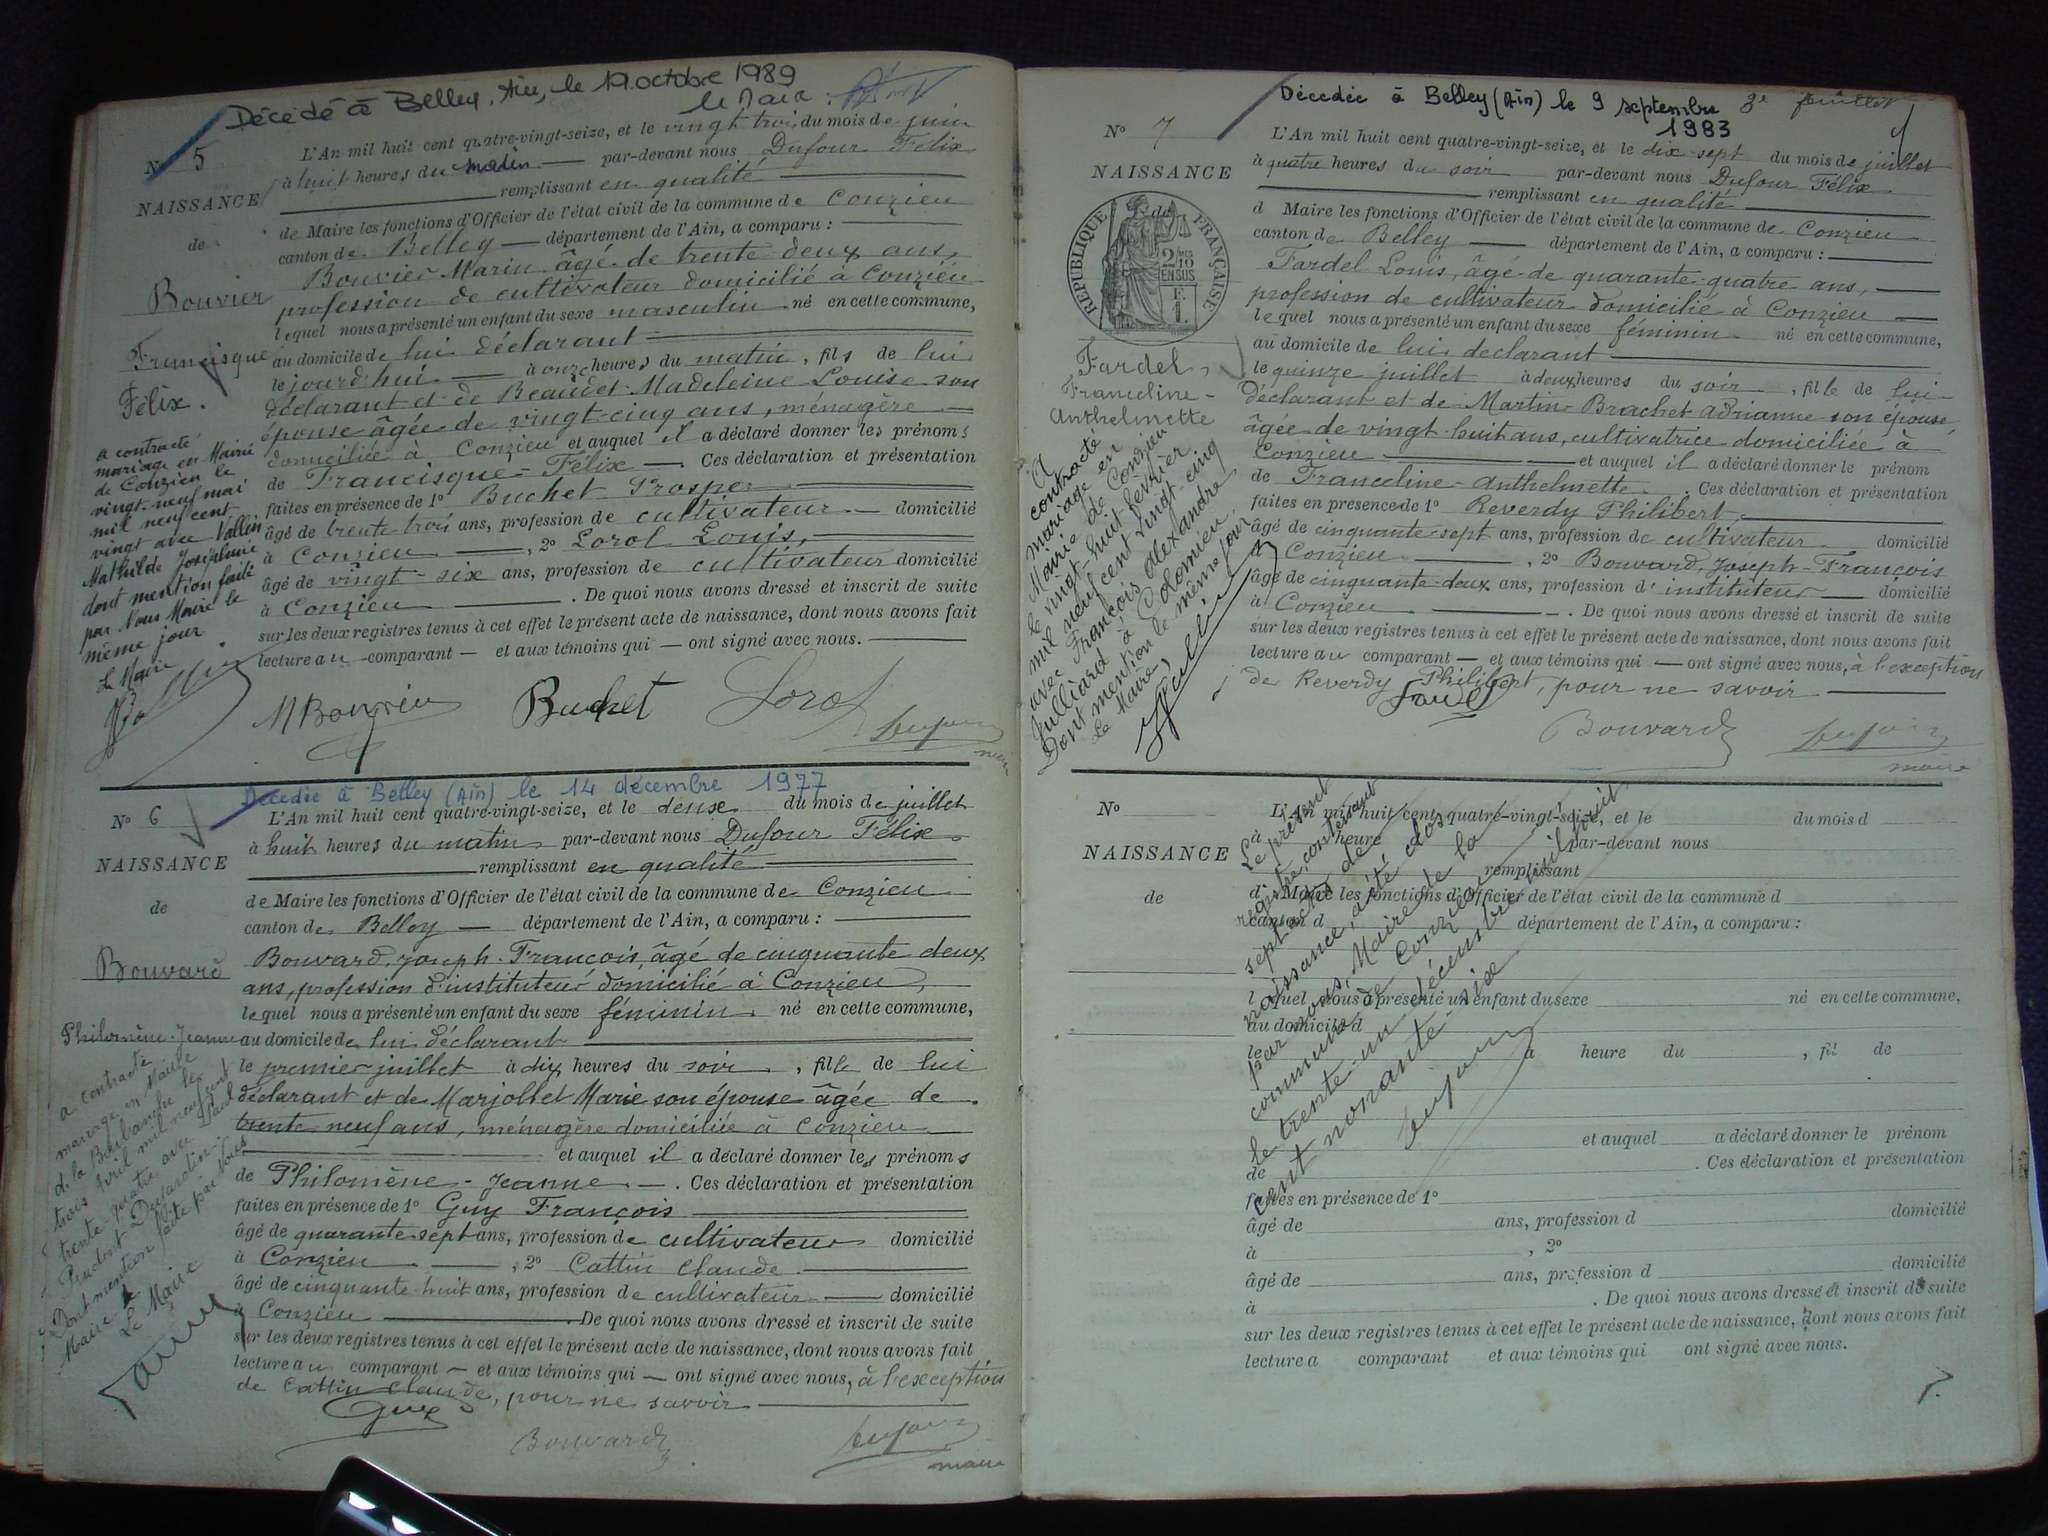 Décédé à Belley, Ain, le 19 octobre 1989
le Maire
N° 5
NAISSANCE
de
Bouvier
Francisque
Félix.
a contracté
mariage en Mairie
de Conzieu le
vingt-neuf mai
mil neuf cent
vingt avec Vallin
Mathilde Joséphine
dont mention faite
par Nous Maire le
même jour
Le Maire
L'An mil huit cent quatre-vingt-seize, et le vingt trois du mois de juin
à huit heures du matin par-devant nous Dufour Félix
remplissant en qualité
de Maire les fonctions d'Officier de l'état civil de la commune de Conzieu
canton de Belley département de l'Ain, a comparu :
Bouvier Marin âgé de trente deux ans,
profession de cultivateur domicilié à Conzieu
lequel nous a présenté un enfant du sexe masculin né en cette commune,
au domicile de lui déclarant
le jourd'hui à onze heures du matin, fils de lui
déclarant et de Beaudet Madeleine Louise son
épouse âgée de vingt-cinq ans, ménagère
domiciliée à Conzieu et auquel il a déclaré donner les prénoms
de Francisque-Félix Ces déclaration et présentation
faites en présence de 1° Buchet Prosper
âgé de trente trois ans, profession de cultivateur domicilié
à Conzieu, 2° Lorol Louis,
âgé de vingt-six ans, profession de cultivateur domicilié
à Conzieu. De quoi nous avons dressé et inscrit de suite
sur les deux registres tenus à cet effet le présent acte de naissance, dont nous avons fait
lecture au comparant et aux témoins qui ont signé avec nous.
M Bouvier Buchet Lorol Dufour
maire
Décédée à Belley (Ain) le 14 décembre 1977
N° 6
NAISSANCE
de
Bouvard
Philomène-Jeanne
a contracté
mariage en Mairie
de la Balbanche le
trois avril mil neuf cent
trente-quatre avec Paul
Prudent Dujardin
Dont mention faite par Nous
Maire
Le Maire
L'An mil huit cent quatre-vingt-seize, et le deux du mois de juillet
à huit heures du matin par-devant nous Dufour Félix
remplissant en qualité
de Maire les fonctions d'Officier de l'état civil de la commune de Conzieu
canton de Belley département de l'Ain, a comparu :
Bouvard, Joseph-François, âgé de cinquante deux
ans, profession d'instituteur domicilié à Conzieu,
lequel nous a présenté un enfant du sexe féminin né en cette commune,
au domicile de lui déclarant
le premier juillet à dix heures du soir, fille de lui
déclarant et de Marjollet Marie son épouse âgée de
trente neuf ans, ménagère domiciliée à Conzieu
et auquel il a déclaré donner les prénoms
de Philomène-Jeanne. Ces déclaration et présentation
faites en présence de 1° Guy François
âgé de quarante sept ans, profession de cultivateur domicilié
à Conzieu, 2° Cattin Claude
âgé de cinquante huit ans, profession de cultivateur domicilié
à Conzieu. De quoi nous avons dressé et inscrit de suite
sur les deux registres tenus à cet effet le présent acte de naissance, dont nous avons fait
lecture au comparant et aux témoins qui ont signé avec nous, à l'exception
de Cattin Claude, pour ne savoir
Guy
Bouvard Dufour
maire
Décédée à Belley (Ain) le 9 septembre 1983
3e feuillet
N° 7
NAISSANCE
de
RÉPUBLIQUE FRANÇAISE
2/10
EN SUS
F.
1.
Fardel
Franceline-
Anthelmette
A
contracté
mariage en
Mairie de Conzieu
le vingt-huit février
mil neuf cent vingt-cinq
avec François Alexandre
Julliard à Colomieu.
Dont mention le même jour
Le Maire,
L'An mil huit cent quatre-vingt-seize, et le dix-sept du mois de juillet
à quatre heures du soir par-devant nous Dufour Félix
remplissant en qualité
d Maire les fonctions d'Officier de l'état civil de la commune de Conzieu
canton de Belley département de l'Ain, a comparu :
Fardel Louis, âgé de quarante-quatre ans,
profession de cultivateur domicilié à Conzieu
lequel nous a présenté un enfant du sexe féminin né en cette commune,
au domicile de lui déclarant
le quinze juillet à deux heures du soir, fille de lui
déclarant et de Martin-Brachet Adrianne son épouse
âgée de vingt-huit ans, cultivatrice domiciliée à
Conzieu et auquel il a déclaré donner le prénom
de Franceline-Anthelmette. Ces déclaration et présentation
faites en présence de 1° Reverdy Philibert,
âgé de cinquante-sept ans, profession de cultivateur domicilié
à Conzieu, 2° Bouvard, Joseph-François
âgé de cinquante-deux ans, profession d'instituteur domicilié
à Conzieu. De quoi nous avons dressé et inscrit de suite
sur les deux registres tenus à cet effet le présent acte de naissance, dont nous avons fait
lecture au comparant et aux témoins qui ont signé avec nous, à l'exception
de Reverdy Philibert, pour ne savoir
Fardel
Bouvard Dufour
maire
N°
NAISSANCE
de
L'An mil huit cent quatre-vingt-seize, et le du mois d
à heure par-devant nous
remplissant
d Maire les fonctions d'Officier de l'état civil de la commune d
canton d département de l'Ain, a comparu :
l quel nous a présenté un enfant du sexe né en cette commune,
au domicile d
le à heure du , fil de
et auquel a déclaré donner le prénom
de . Ces déclaration et présentation
faites en présence de 1°
âgé de ans, profession d domicilié
à , 2°
âgé de ans, profession d domicilié
à . De quoi nous avons dressé et inscrit de suite
sur les deux registres tenus à cet effet le présent acte de naissance, dont nous avons fait
lecture a comparant et aux témoins qui ont signé avec nous.
Le présent
registre, contenant
sept actes de
naissance, a été clos
par nous, Maire de la
commune de Conzieu
le trente-un décembre mil huit
cent nonante-six
Dufour